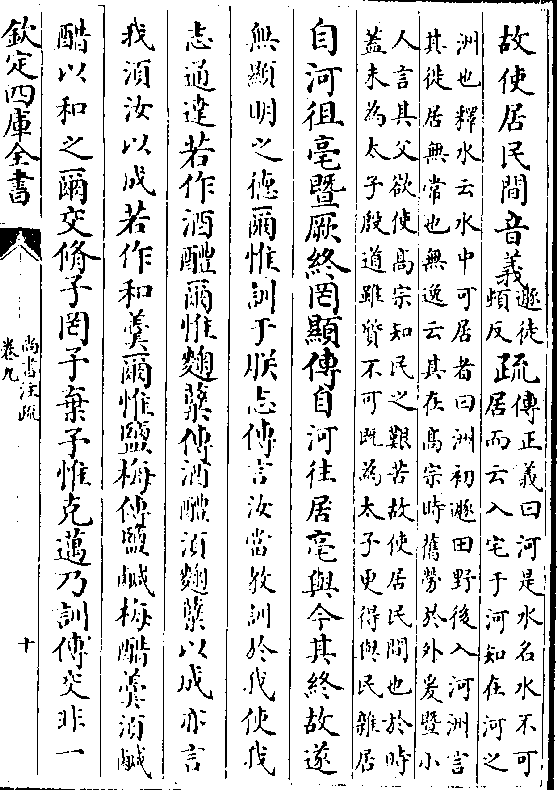 故使居民間音義遯徒頓反疏傳正義曰河是水名水不可居而云入宅于河知在河之
洲也釋水云水中可居者曰洲初遯田野後入河洲言
其徙居無常也無逸云其在高宗時舊勞於外爰暨小
人言其父欲使高宗知民之艱苦故使居民間也於時
蓋未為太子殷道雖質不可既為太子更得與民雜居
自河徂亳暨厥終罔顯傳自河往居亳與今其終故遂
無顯明之德爾惟訓于朕志傳言汝當教訓於我使我
志通達若作酒醴爾惟麴糵傳酒醴須麴糵以成亦言
我須汝以成若作和羮爾惟鹽梅傳鹽鹹梅醋羮須鹹
醋以和之爾交脩予罔予棄予惟克邁乃訓傳交非一
欽定四庫全書
尚書注疏
卷九
十